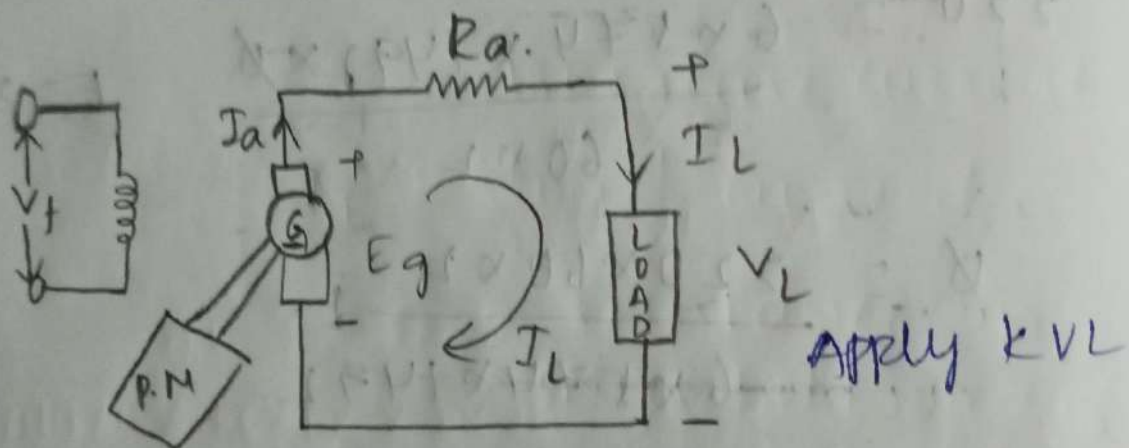 Ra.
+
Ia
+
IL
Vf
G
Eg
LOAD
VL
-
IL
P.M
Apply KVL
-